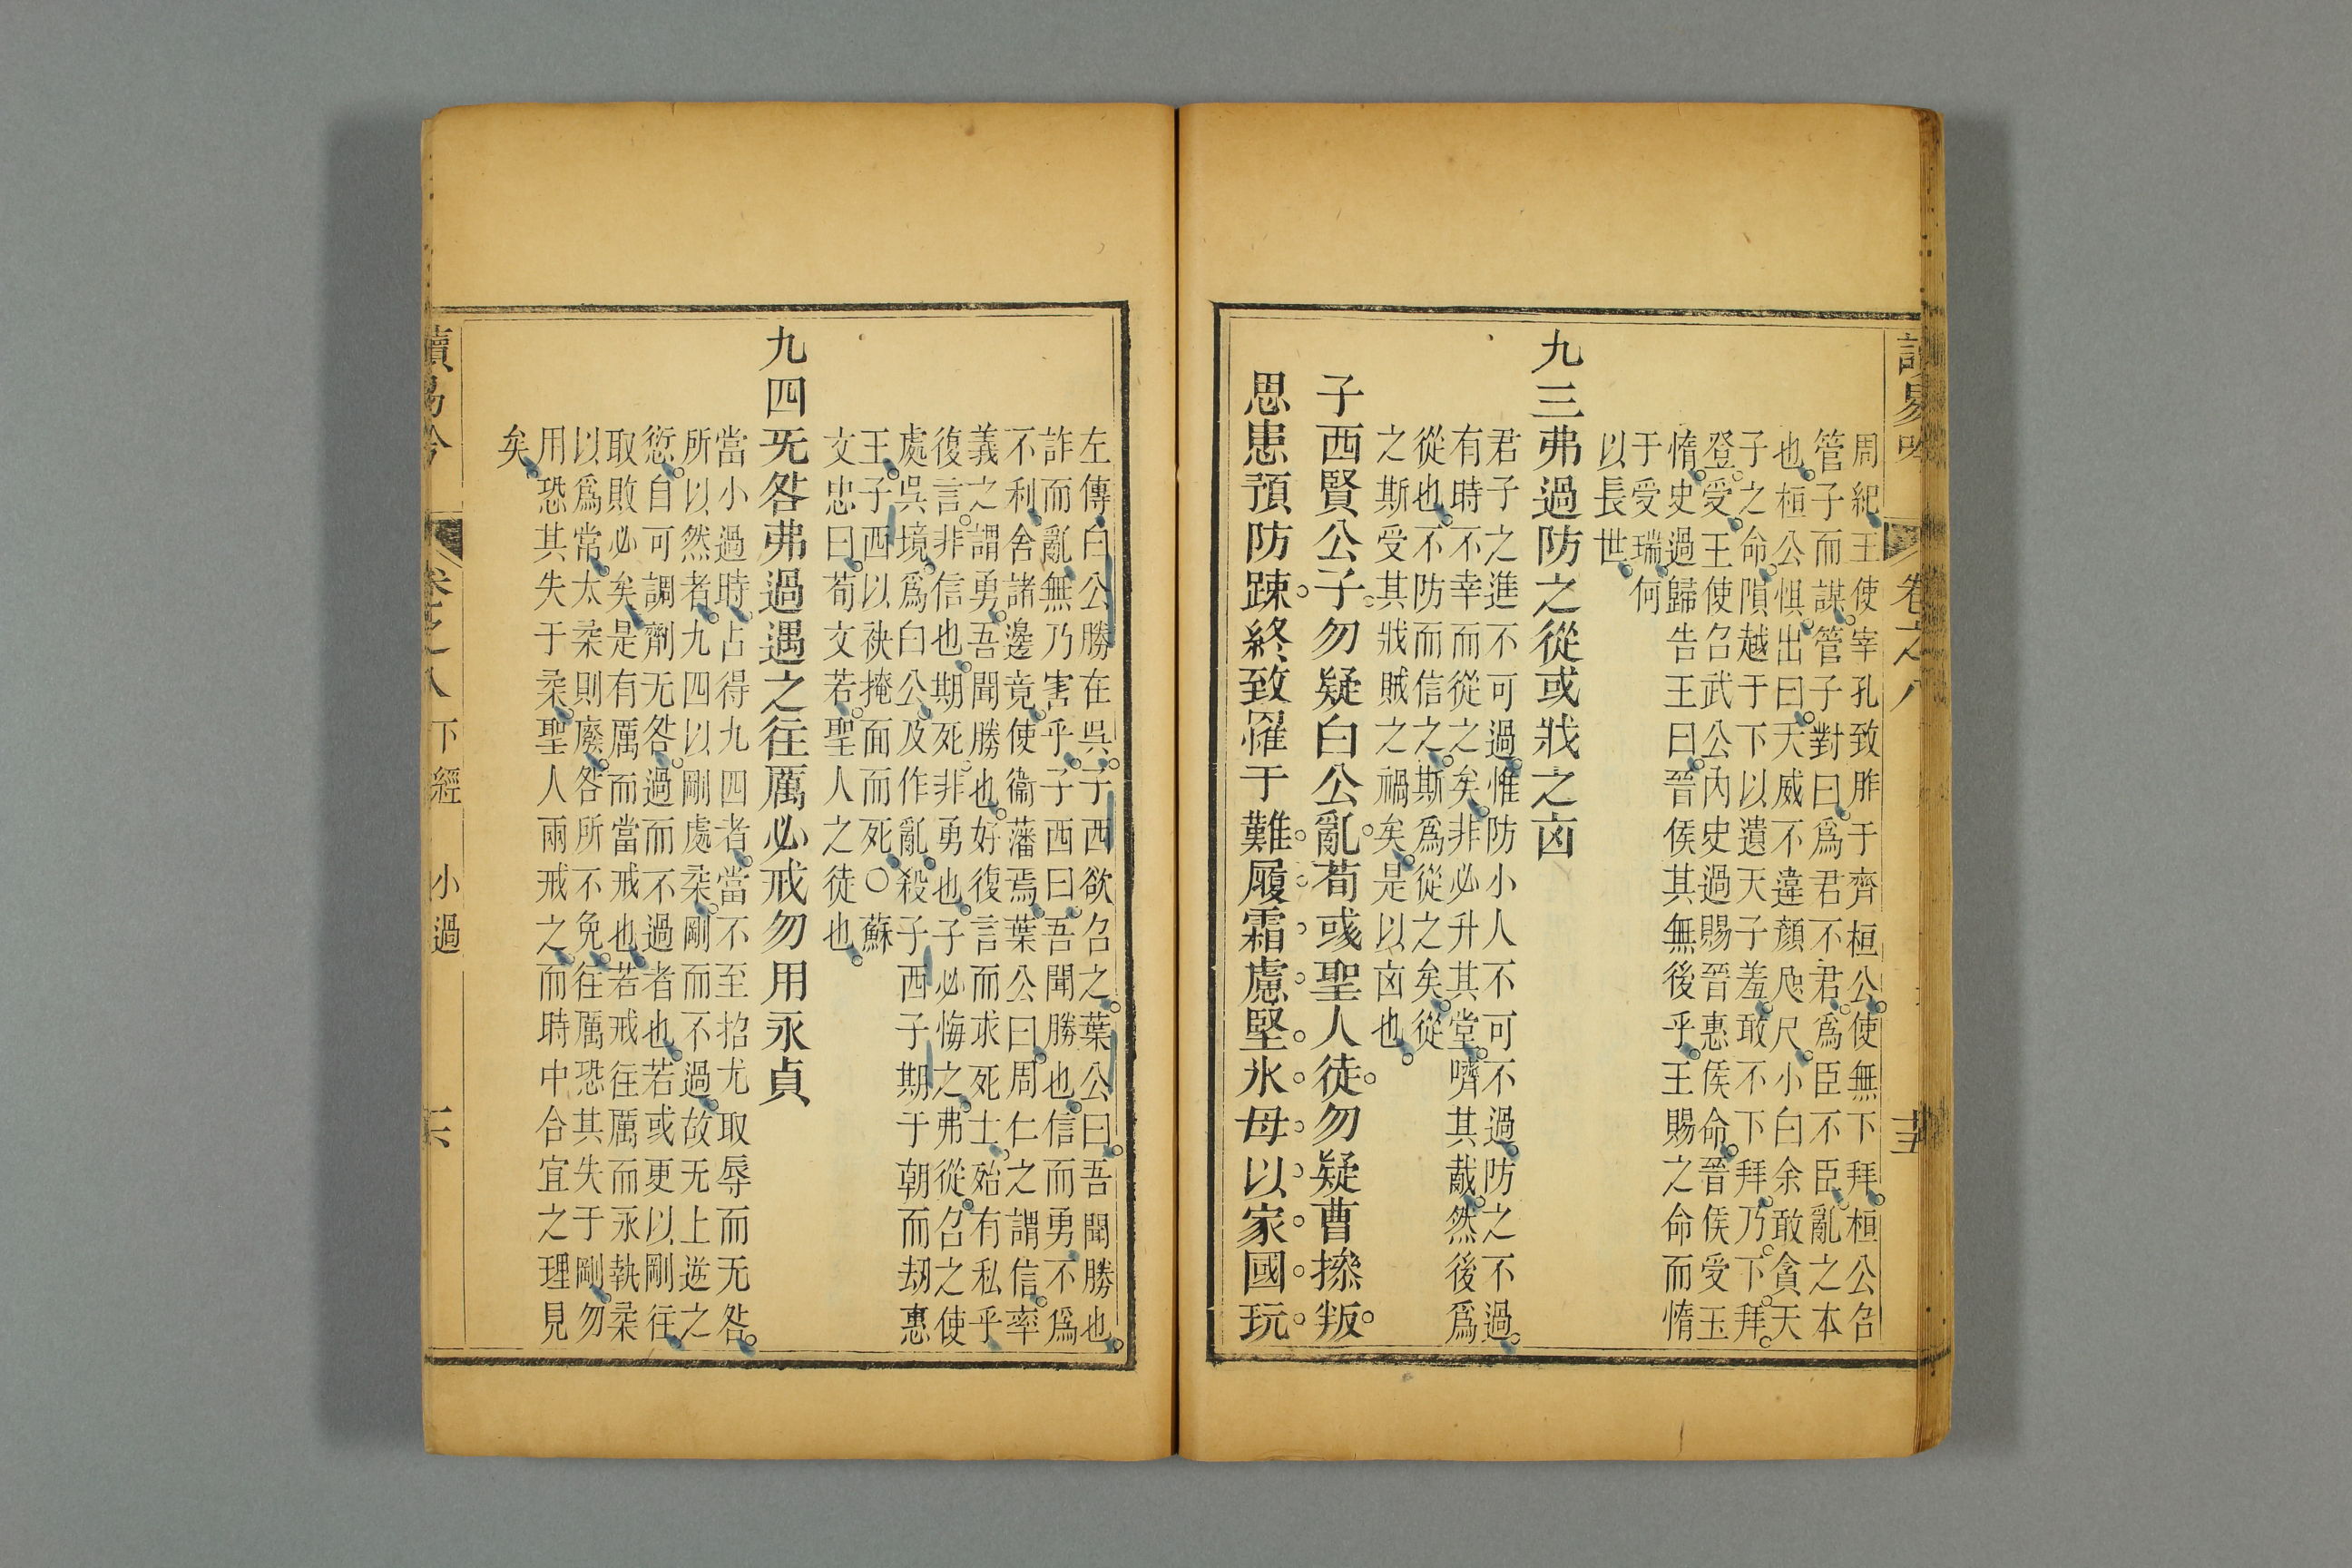 周紀王使宰孔致胙于齊桓公使無下拜桓公召
管子而謀管子對曰爲君不君爲臣不臣亂之本
也桓公惧出曰天威不違顏咫尺小白余敢貪天
子之命隕越于下以遺天子羞敢不下拜乃下拜
登受王使召武公内史過賜晉惠侯命晉侯受玉
惰史過歸告王曰晉侯其無後乎王賜之命而惰
于受瑞何
以長世
九三弗過防之從或戕之㐫
君子之進不可過惟防小人不可不過防之不過
有時不幸而從之矣非必升其堂嚌其胾然後爲
從也不防而信之斯爲從之矣從
之斯受其戕賊之禍矣是以㐫也
子西賢公子勿疑白公亂荀彧聖人徒勿疑曹操叛
思患預防踈終致罹于難履霜慮堅氷毋以家國玩
卷之八
左傳白公勝在吳子西欲召之葉公曰吾聞勝也
詐而亂無乃害乎子西曰吾聞勝也信而勇不爲
不利舍諸邊竟使衞藩焉葉公曰周仁之謂信率
義之謂勇吾聞勝也好復言而求死士殆有私乎
復言非信也期死非勇也子必悔之弗從召之使
處吳境爲白公及作亂殺子西子期于朝而刼惠
王子西以袂掩面而死○蘇
文忠曰荀文若聖人之徒也
九四无咎弗過遇之往厲必戒勿用永貞
當小過時占得九四者當不至招尤取辱而无咎
所以然者九四以剛處柔剛而不過故无上逆之
愆自可調劑无咎過而不過者也若或更以剛往
取敗必矣是有厲而當戒也若戒往厲而永執柔
以爲常太柔則廢咎所不免往厲恐其失于剛勿
用恐其失于柔聖人兩戒之而時中合宜之理見
矣
下經 小過